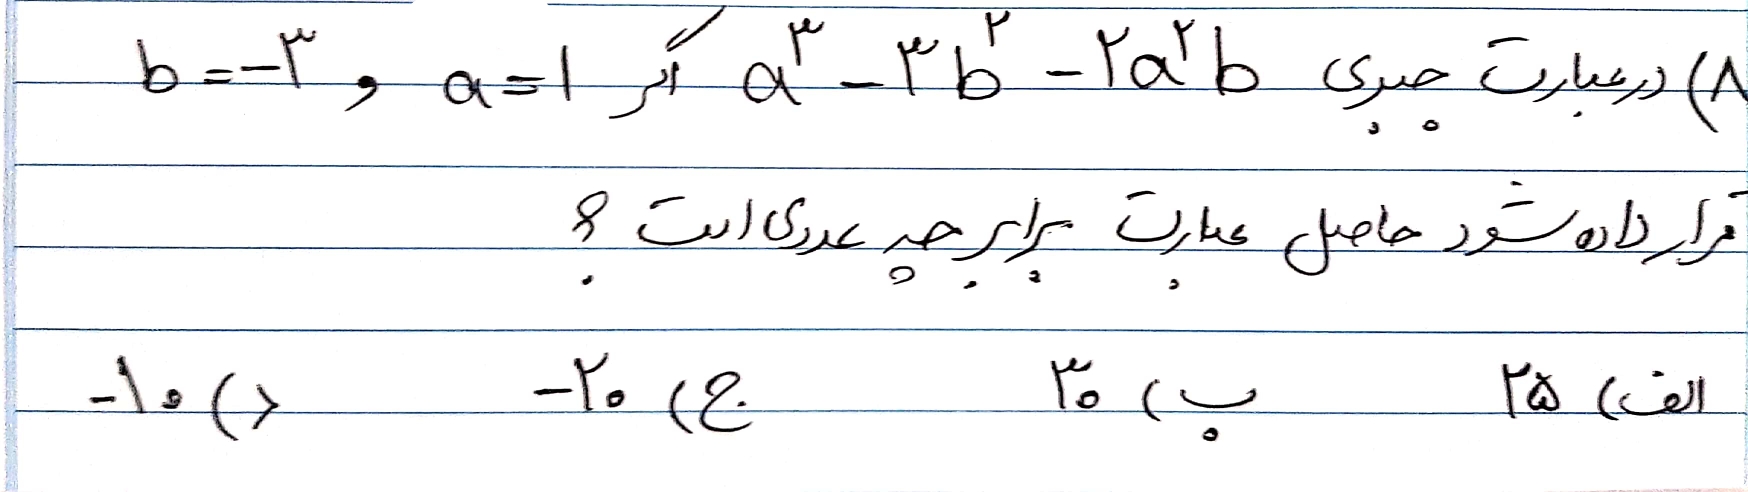 ۸) در عبارت جبری a³ - ۳b² - ۲a²b اگر a = ۱ و b = -۳
قرار داده شود حاصل عبارت برابر چه عددی است ؟
الف) ۲۵ ب) ۳۰ ج) -۲۰ د) -۱۰